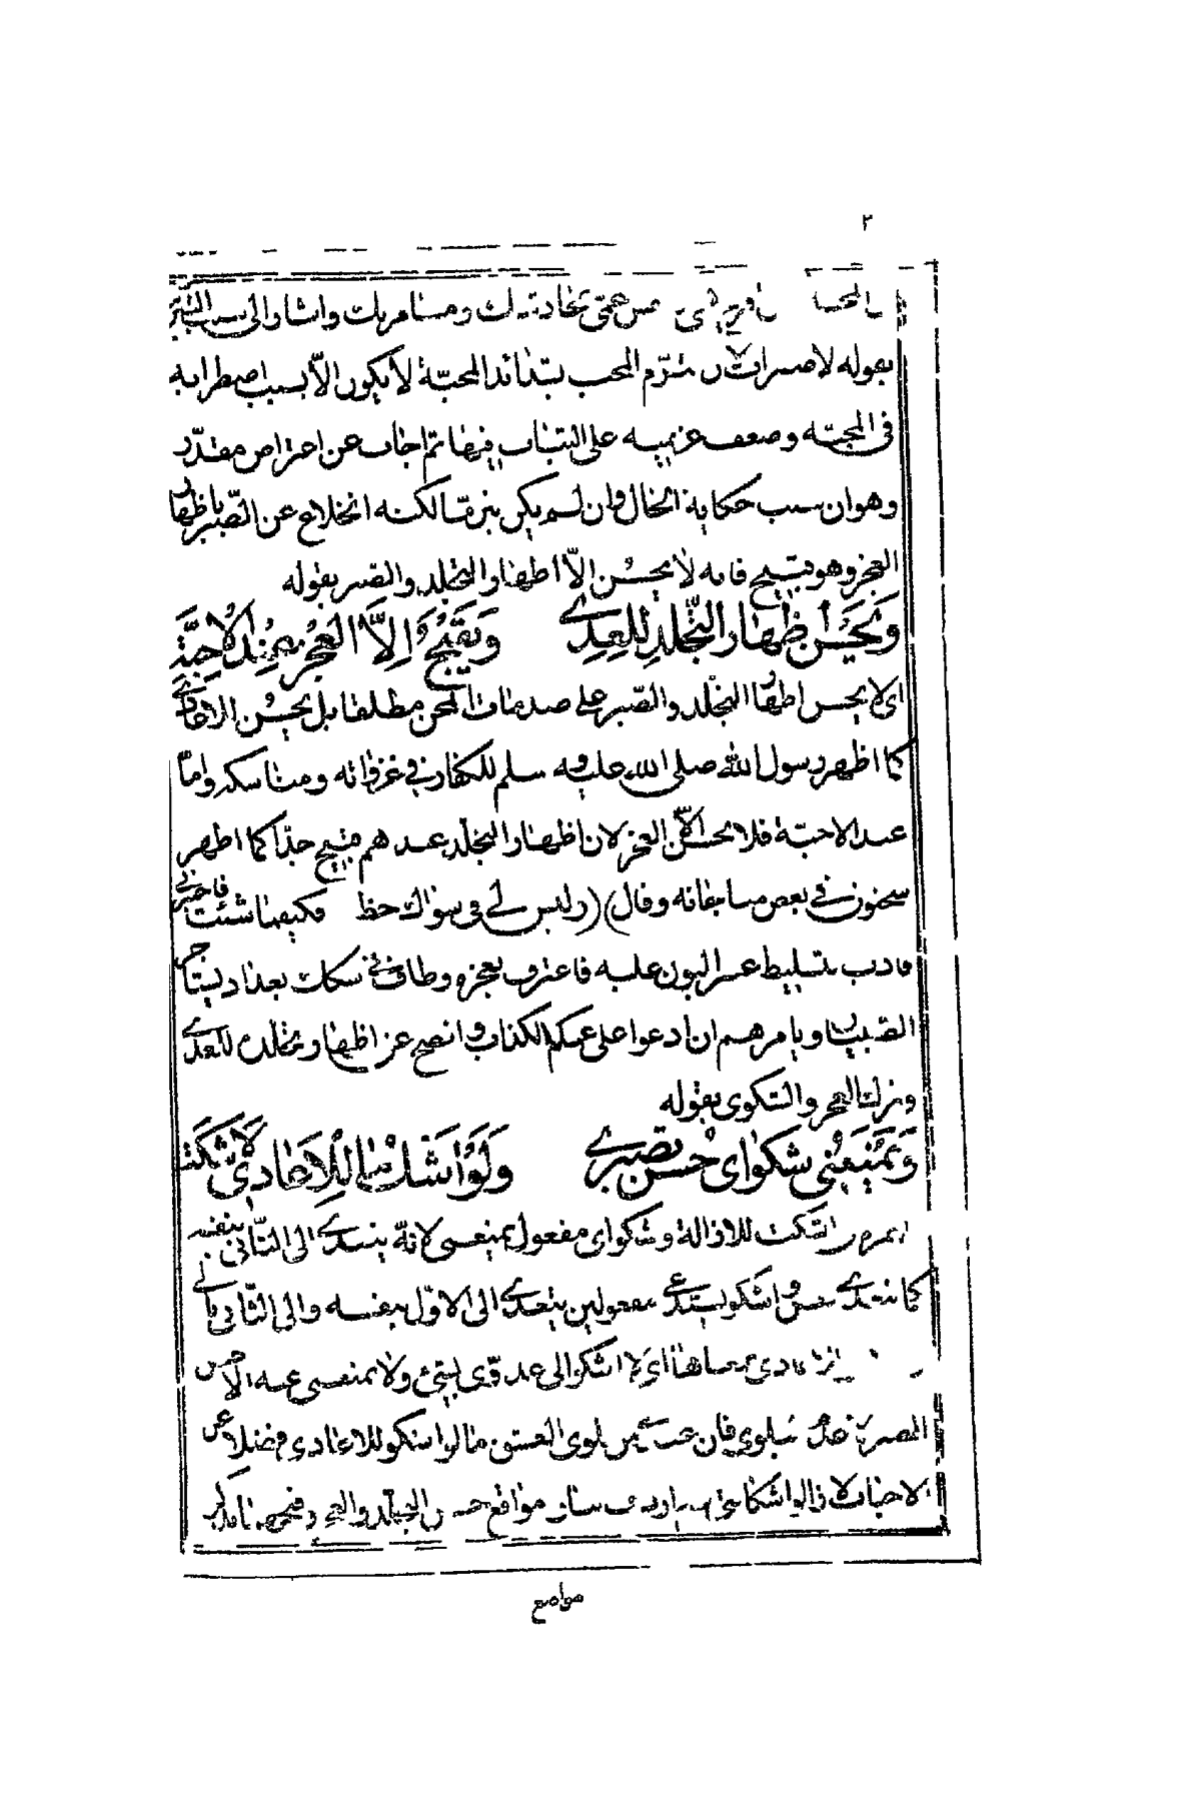 ٢
بمحادثتك ومسامرتك واشار الى سبب التبرم
بقوله لاضراب لان تبرّم المحب بشدائد المحبّة لا يكون الاّ بسبب اضطرابه
فى المحبّه وضعف عزيمته على الثبات فيها ثم اجاب عن اعتراض مقدّر
وهو ان سبب حكاية الحال وان لم يكن تبرّما لكنه انخلاع عن الصّبر باظهار
العجز وهو قبيح فانه لا يحسُن إلاّ اظهار التجلد والصبر بقوله
وَيَحْسُنُ إظْهَارُ التَّجَلُّدِ لِلْعِدَى وَيَقْبُحُ إلاَّ العَجْزُ عِنْدَ الأَحِبَّةِ
اى لا يحسن اظهار التجلّد والصّبر على صدمات المحن مطلقا بل يحسُن الى الاعادى
كما اظهر رسول الله صلى الله عليه وسلم للكفار فى غزواته ومناسكه وامّا
عند الاحبّة فلا يحسن الاّ العجز لان اظهار التجلّد عندهم قبيح جدّا كما اظهر
سمنون فى بعض مناجاته وقال (وليس لى فى سواك حظ فكيفما شئت فاختبرنى
فادب بتسليط عسر البول عليه فاعترف بعجزه وطاف فى سكك بغداد يستاجر
الصّبيان ويامرهم ان ادعوا على عمكم الكذاب وافصح عن اظهار تجلده للعدى
وترك العجز والشكوى بقوله
وَيَمْنَعُنِى شَكْوَاىَ حُسْنُ تَصَبُّرِى وَلَوْ أَشْكُ مَا بِى لِلأَعَادِى لأَشْكَتِ
همزه اشكت للازالة وشكواى مفعول يمنعنى لانّه يتعدى الى الثّانى بنفسه
كما يتعدى بعن واشكو يستدعى مفعولين يتعدى الى الاوّل بنفسه والى الثّانى بالى
اشكو الى عدوّى بشئ ولا يمنعنى عنه الاّ حسن
الصبر فان بلوى العشق ما لو اشكو للاعادى فضلا عن
الاحباب لازالوا شكايتى مواقع حسن التجلد والعجز
مواضع